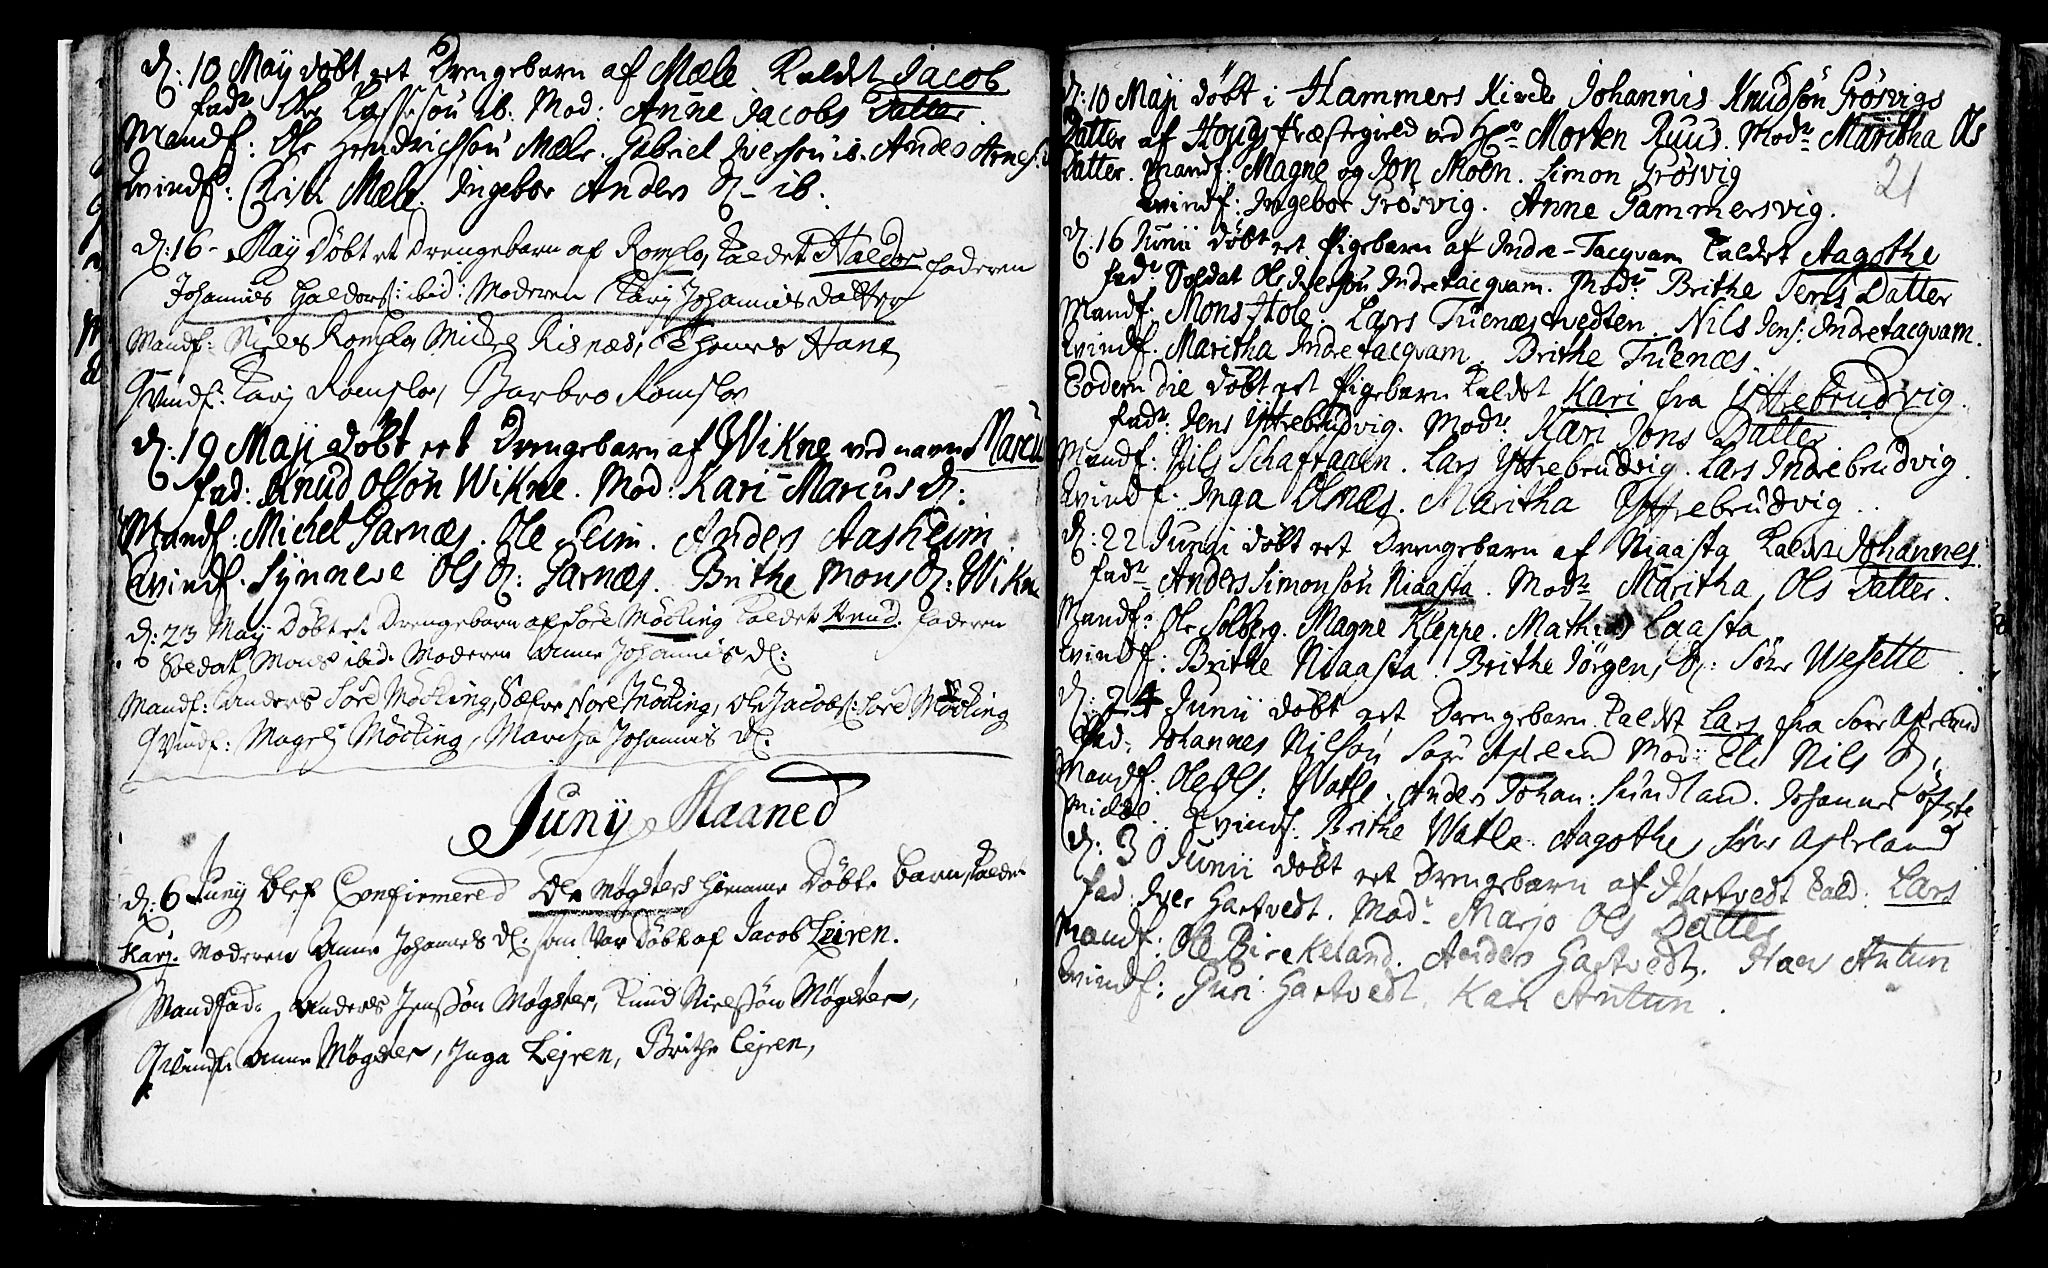 d: 10 Maÿ döbt eet Drengebarn af Mæle kaldet Jacob
fadr Ole Lassesön ib. Mod: Anne Jacobs Datter.
Mandf: Ole Hendrichssön Mæle. Gabriel Iversön ib. Andes Arnes:
Kvindf: Christi Mæle. Ingebor Anders D- ib.
d: 16- Maÿ Döbt et Drengebarn af Romslo, kaldet Haldor faderen
Johannes Haldors: ibid: Moderen Karj Johannisdatter
Mandf: Niels Romslo, Micke Risnæs, Thomes Hane
Qvindf: Karj Romslo, Barbro Romslo
d: 19 Maji döbt eet Drengebarn af Wikne ved navn Marcu
fad: Knud Olsön Wikne. Mod: Kari Marcus D:
Mandf: Michel Garnæs. Ole Seim. Anders Aasheim.
Kvindf. Synneve Ols D: Garnæs. Brithe Mons D: Wikne
d: 23 Maÿ Döbt et Drengebarn af Söre Möcling kaldet Knud. faderen
Soldat Mons ibid. Moderen Anne Johannis D:
Mandf: Anders Söre Möcling, Nore Möcling, Ole Jacobs: Söre Möcling
Qvindf: Mageli Möcling, Maritha Johannis D:
Junÿ Maaned
d: 6 Junÿ blef Confirmered Ole Møgsters hiemme Döbte barn, kaldet
Karj. Moderen Anne Johannes D: som var Döbt af Jacob Leiren.
Mandfad: Anders Jenssön Møgster, Knud Nielssön Møgster,
Qvindf: Anne Møgster, Inga Lejren, Brithe Lejren,
d: 10 Maji döbt i Hammers Kircke Johannis Knudsön Grøsvigs
Datter af Hougs Præstegield ved Hr Morten Ruus. Modr Maritha Ols
Datter. Mandf: Magne og Jon Moen. Simon Grøsvig
21
Kvindf: Ingebor Grøsvig. Anne Gammersvig.
d. 16 Junii döbt eet Pigebarn af Indre-Tacqvam kaldet Aagothe
fadr Soldat Ole Iversön Indretacqvam. Modr Brithe Jens Datter
Mandf: Mons Hole. Lars Tuenæs Nils Jens: Indretacqvam.
Kvindf. Maritha Indretacqvam. Brithe Tuenæs.
Eodem die döbt eet Pigebarn kaldet Kari fra Yttrebrudvig.
fadr Jens Yttrebrudvig. Modr Kari Jons Datter.
Mandf: Nils Schaftaaen. Lars Yttrebrudvig. Lars Indrebrudvig
Kvindf. Inga Elnæs. Maritha Yttrebrudvig.
d: 22 Junii döbt eet Drengebarn af Niaasta kaldet Johannes.
fadr Anders Simonsön Niaasta. Modr Maritha Ols Datter.
Mandf: Ole Solberg. Magne Kleppe. Mathias Laasta
Kvindf: Brithe Niaasta. Brithe Jörgens D: Söre Wesette
d: 24 Junii döbt eet Drengebarn kaldet Lars fra Söre Asseland
fad: Johannes Nilsön Söre Asseland Mod: Eli Nils D:
Mandf. Ole Ols: Watle. Anders Johan: Sundland. Johannes Öfste
Kvindf. Brithe Watle. Aagothe Söre Asseland
d: 30 Junii döbt eet Drengebarn af Hartvedt kald: Lars
fad: Iver Hartvedt. Modr Marjo Ols Datter
Mandf: Ole Birckeland. Anders Hartvedt. Hans Antun
Kvindf: Guri Hartvedt. Kari Antun.